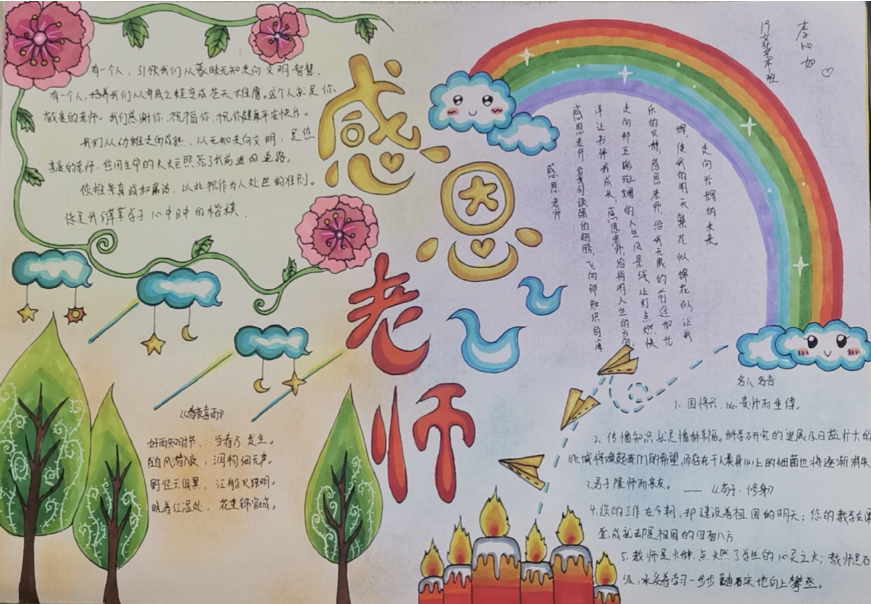 感恩老师
有一个人，引领我们从蒙昧无知走向文明智慧，
有一个人，培养我们从青成之柱变成苍天大楷膺。这个人就是你，
敬爱的老师。我们感谢你，祝福你，祝你健康平安快乐。
我们从幼稚走向成熟，从无知走向文明，是您
亲爱的老师，您用生命的火炬照亮了我前进的道路。
您推崇真诚和廉洁，以此视作为人处世的准则。
您是我们莘莘学子心中的楷模。
李
走向光辉的未来
辉，使我的明天繁花似锦花似让我
乐的火种，感恩老师，给我无限的前途和光
走向那五彩斑斓的人生风景线，让灯点燃快
洋，让书伴我成长，感恩老师，给将明人生的方向
感恩老师，给我引
的翅膀，飞向那知识的海
感恩老师
《春夜喜雨》
好雨知时节，当春乃发生。
随风潜入夜，润物细无声。
野径云俱黑，
火独明。
晓看红湿处，花重锦官城。
名人名言
1、国将兴，必贵师而重傅。
2、传播知识就是播种幸福。科学研究的进展及日益扩大的
领域将唤起我们的希望，而存在于人类身心上的细菌也将逐渐消失
3、君子隆师而亲友。——《荀子·修身》
4、您的工作在今朝，却建设着祖国的明天；您的教学在课
堂，成就却是祖国的四面八方
5、教师是火种，点燃了学生的心灵之火；教师是石
级，承受着学习一步步踏实地向上攀登。